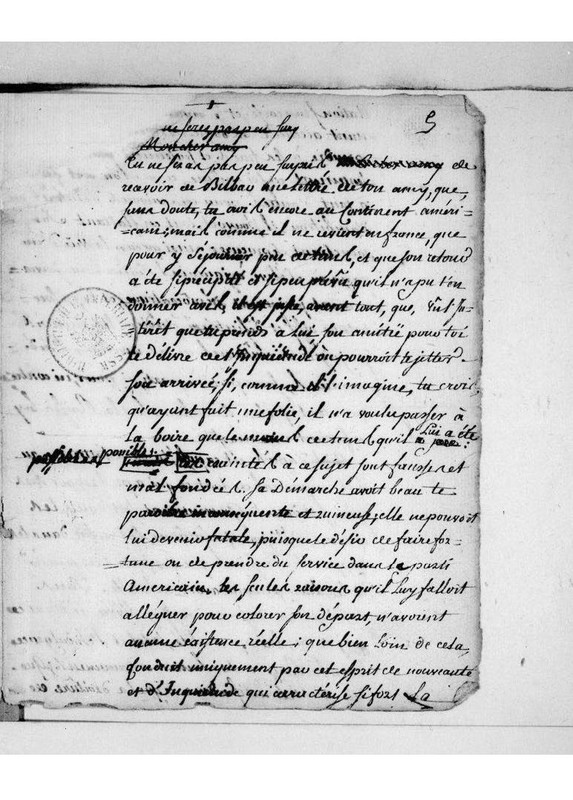 5
ne seras pas peu surp
Mon cher amy
Tu ne seras pas peu surpris de
recevoir de Bilbao une lettre de ton amy, que,
sans doute, tu avois encore au Continent améri-
=cain; mais comme il ne revient en france, que
pour y séjourner peu de tems, et que son retour
a été si précipité et si peu prévu qu'il n'a pu t'en
donner avis, il est juste, avant tout, que, l'In-
térêt que tu prends à lui son amitié pour toi
te délivre de l'Inquiétude où pourroit te jetter
son arrivée; si, comme il l'imagine, tu crois,
qu'ayant fait une folie, il n'a voulu passer à
la boire que le tems qu'il Lui a été
possible possible; tes craintes à ce sujet sont fausses et
mal fondées. Sa Démarche avoit beau te
paroître inconsequente et ruineuse; elle ne pouvoit
lui devenir fatale, puisque le desir de faire for-
=tune ou de prendre du service dans le parti
Americain, les seules raisons qu'il luy falloit
alléguer pour colorer son départ, n'avoient
aucune éxistence réelle; que bien loin de cela,
fondroit uniquement par cet esprit de nouveauté
et d'Inquiétude qui caractérise si fort La